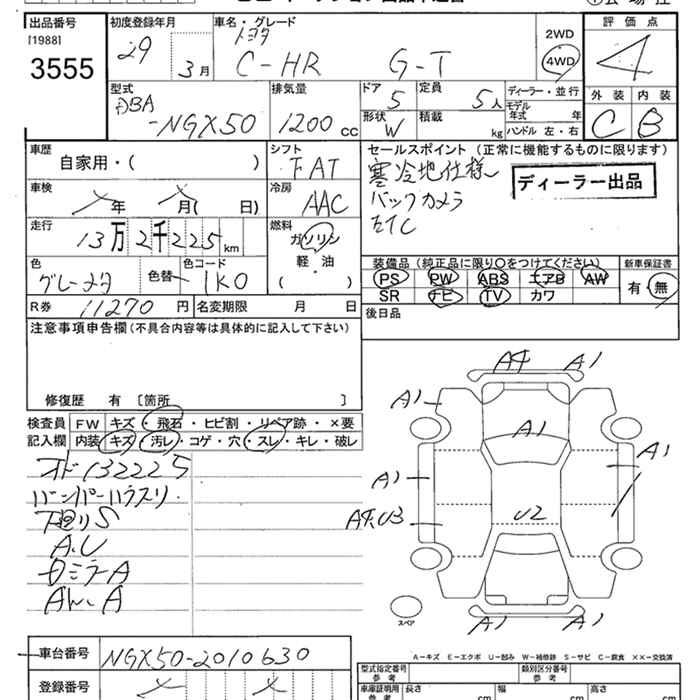 出品番号
[1988]
3555
初度登録年月
29
3月
車名・グレード
トヨタ
C-HR G-T
2WD
4WD
評価点
4
型式
DBA
-NGX50
排気量
1200 cc
ドア
5
定員
5人
形状
W
積載
kg
ディーラー・並行
モデル年式 年
ハンドル 左・右
外装 内装
C B
車歴
自家用・( )
シフト
FAT
セールスポイント (正常に機能するものに限ります)
寒冷地仕様
バックカメラ
ETC
ディーラー出品
車検
年 月( 日)
冷房
AAC
走行
13万2千225km
燃料
ガソリン
軽・油
( )
色
色替
色コード
1K0
装備品 (純正品に限り○をつけてください)
PS PW ABS エアB AW
SR ナビ TV カワ
新車保証書
有・無
R券 11270円
名変期限 月 日
後日品
注意事項申告欄(不具合内容等は具体的に記入して下さい)
修復歴 有 [箇所 ]
検査員
記入欄
FW キズ・飛石・ヒビ割・リペア跡・×要
内装 キズ・汚レ・コゲ・穴・スレ・キレ・破レ
132225
A.U
A
A4 A1
A1
A1
A1
A1
A4.U3
U2
A1 A1
スペア
A-キズ E-エクボ U-凹み W-補修跡 S-サビ C-腐食 ××-交換済
車台番号
NGX50-2010630
登録番号
型式指定番号
参考
類別区分番号
参考
車庫証明用
参考
長さ cm
幅 cm
高さ cm